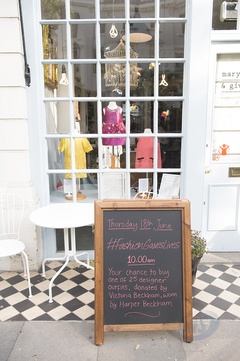 Thursday 18th June
#FashionSavesLives
10.00am
Your chance to buy
one of 25 designer
outfits, donated by
Victoria Beckham, worn
by Harper Beckham
mary